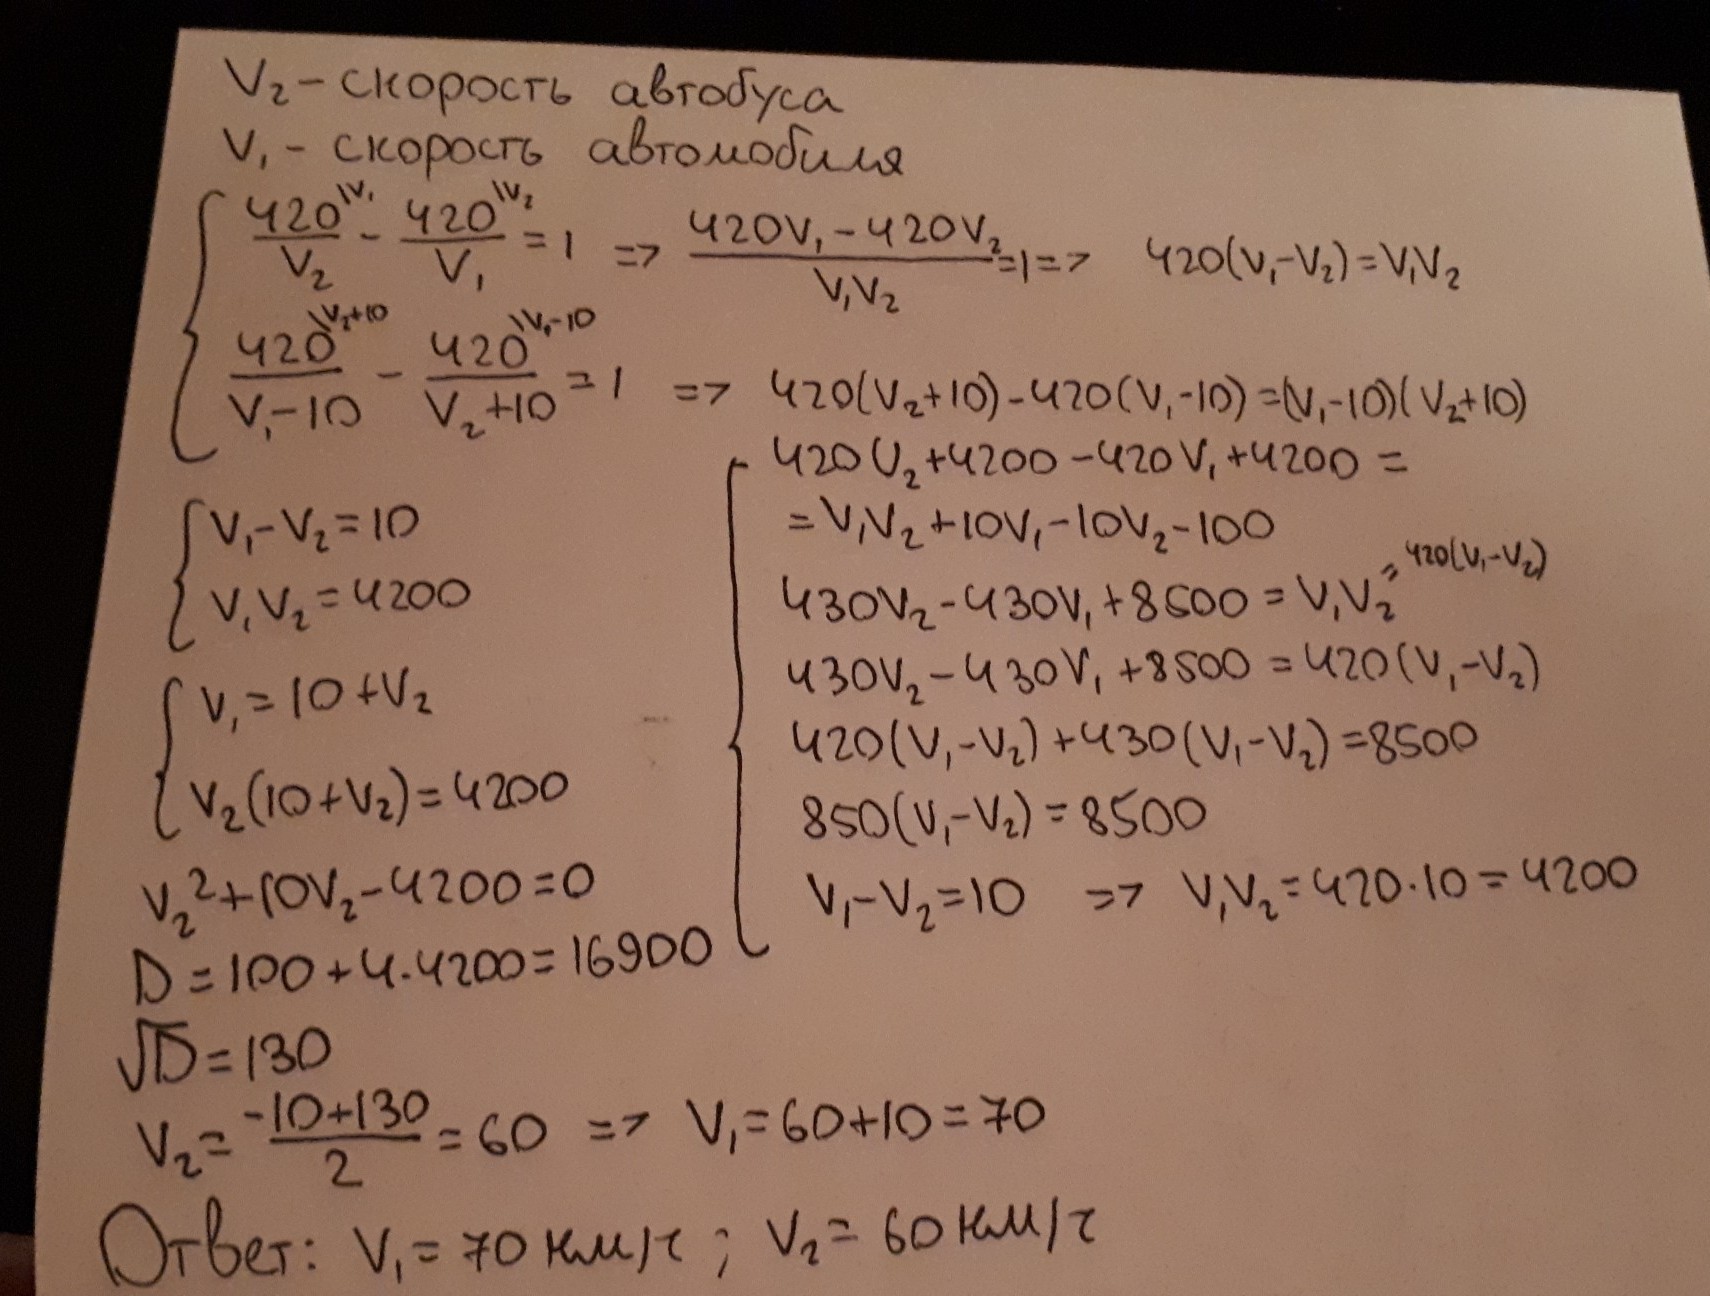 V₂ - скорость автобуса
V₁ - скорость автомобиля
420\V₁/V₂ - 420\V₂/V₁ = 1 => (420V₁ - 420V₂)/V₁V₂ = 1 => 420(V₁-V₂)=V₁V₂
420\V₂+10/(V₁-10) - 420\V₁-10/(V₂+10) = 1 => 420(V₂+10)-420(V₁-10)=(V₁-10)(V₂+10)
420V₂+4200-420V₁+4200=
=V₁V₂+10V₁-10V₂-100
430V₂-430V₁+8500=V₁V₂=420(V₁-V₂)
430V₂-430V₁+8500=420(V₁-V₂)
420(V₁-V₂)+430(V₁-V₂)=8500
850(V₁-V₂)=8500
V₁-V₂=10 => V₁V₂=420·10=4200
V₁-V₂=10
V₁V₂=4200
V₁=10+V₂
V₂(10+V₂)=4200
V₂²+10V₂-4200=0
D=100+4·4200=16900
√D=130
V₂=(-10+130)/2=60 => V₁=60+10=70
Ответ: V₁=70 км/ч; V₂=60 км/ч